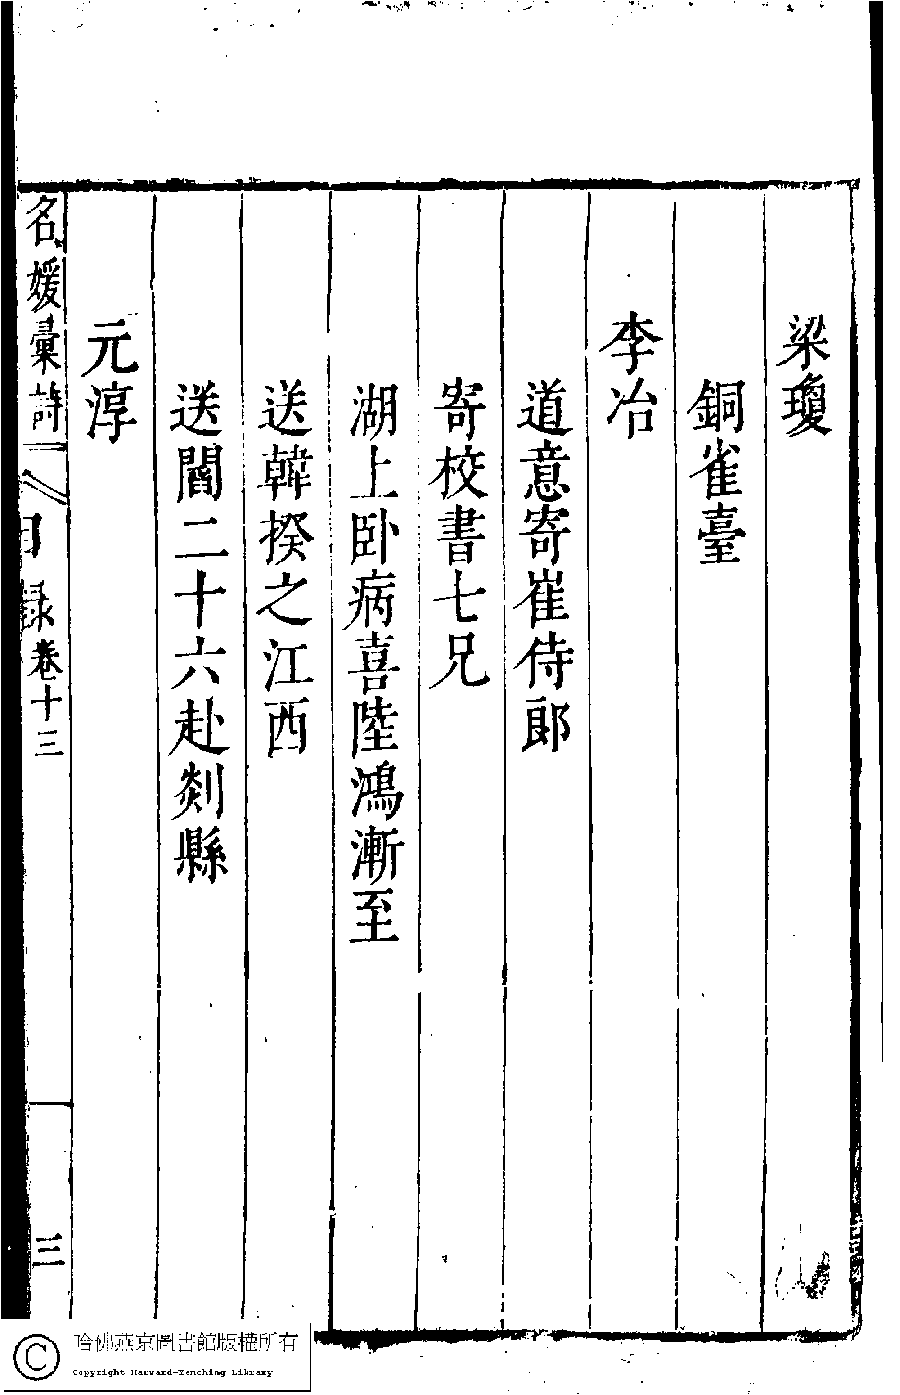 梁瓊
銅雀臺
李冶
道意寄崔侍郎
寄校書七兄
湖上卧病喜陸鴻漸至
送韓揆之江西
送閻二十六赴剡縣
元淳
名媛彙詩
目錄卷十三
三
哈佛燕京圖書館版權所有
Copyright Harvard-Yenching Library